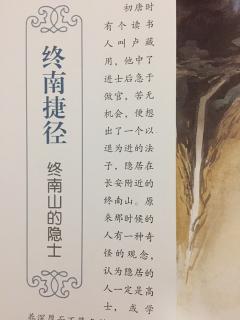 终南捷径
终南山的隐士
初唐时
有个读书
人叫卢藏
用，他中了
进士后急于
做官，苦无
机会，便想
出了一个以
退为进的法
子，隐居在
长安附近的
终南山。原
来那时候的
人有一种奇
怪的观念，
认为隐居的
人一定是高
士，或学